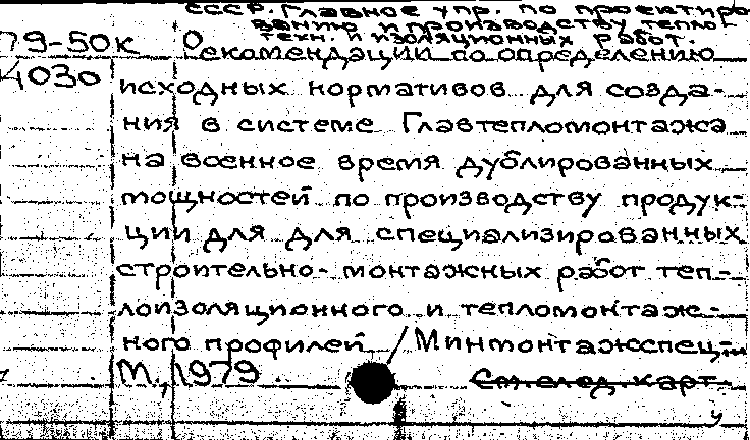 СССР. Главное упр. по проектиро-
ванию и производству тепло-
техн. и изоляционных работ.
79-50к Рекомендации по определению
4030 исходных нормативов для созда-
ния в системе Главтепломонтажа
на военное время дублированных
мощностей по производству продук-
ции для для специализированных
строительно-монтажных работ теп-
лоизоляционного и тепломонтаж-
ного профилей / Минмонтажспец-
М., 1979.
См. след. карт.